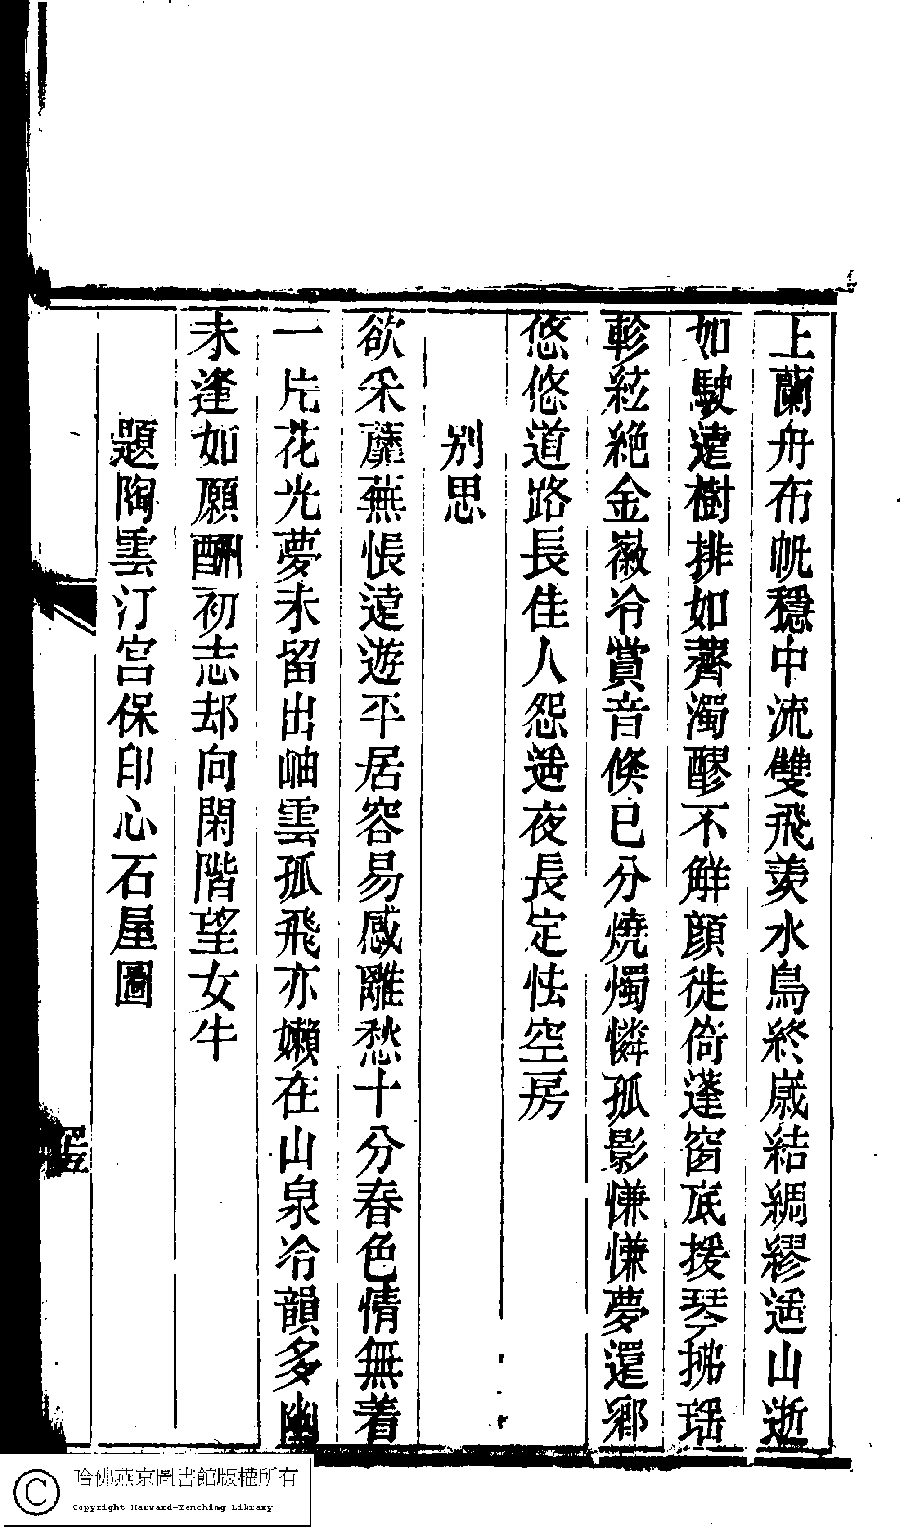 上蘭舟布帆穩中流雙飛羨水鳥終歲結綢繆遥山逝
如駛遠樹排如薺濁醪不解顔徙倚蓬窗底援琴拂瑶
軫絃絶金徽冷賞音倐已分燒燭憐孤影慊慊夢還鄉
悠悠道路長佳人怨遥夜長定怯空房
别思
欲采蘼蕪悵遠遊平居容易感離愁十分春色情無着
一片花光夢未留出岫雲孤飛亦嬾在山泉冷韻多幽
未逢如願酬初志却向閑階望女牛
題陶雲汀宫保印心石屋圖
哈佛燕京圖書館版權所有
Copyright Harvard-Yenching Library